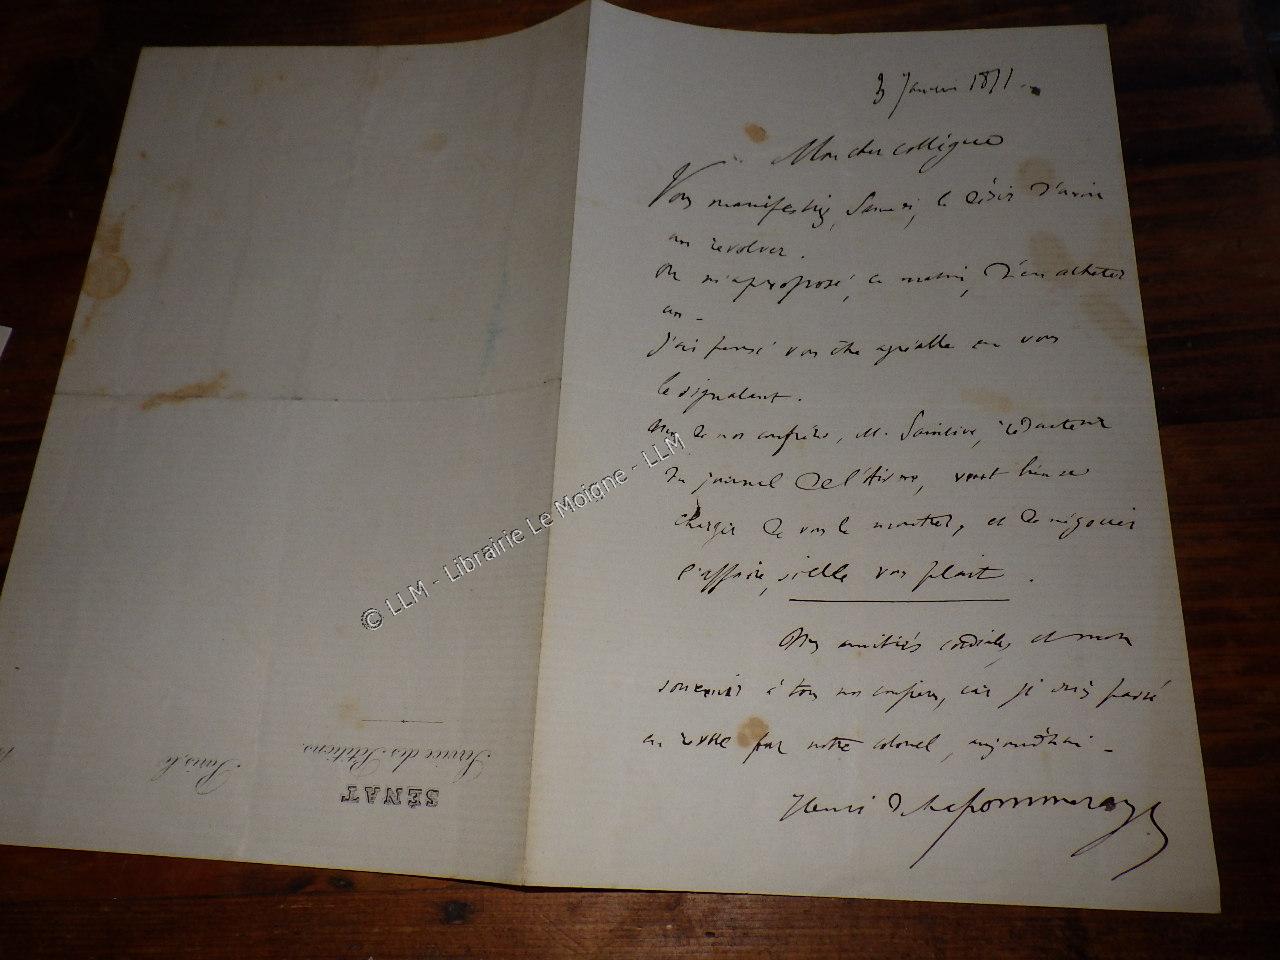 3 Janvier 1871.
Mon cher collègue
Vous manifestiez, Samedi, le désir d'avoir
un revolver.
On m'a proposé, ce matin, d'en acheter
un.
J'ai pensé vous être agréable en vous
le signalant.
Un de nos confrères, M. rédacteur
du journal de l'Aisne, veut bien se
charger de vous le montrer, et de négocier
l'affaire, si elle vous plait.
Mes amitiés cordiales, et mon
souvenir à tous nos confrères, car je suis passé
en revue par notre colonel, aujourd'hui.
Henri de Lapommeraye
© LLM - Librairie Le Moigne - LLM
SÉNAT
Service des Pétitions
Paris, le